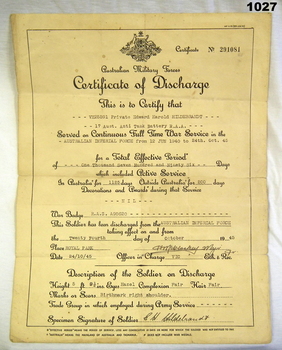 1027
Certificate No 291081
Australian Military Forces
Certificate of Discharge
This is to Certify that
Private Edward Harold HILDEBRANDT
Aust. Anti Tank Battery
Served on Continuous Full Time War Service in the
AUSTRALIAN IMPERIAL FORCE from 12 JUN 1940 to 24th. Oct. 45
for a Total Effective Period
of One Thousand Seven Hundred and Ninety Days
which included Active Service
In Australia for Days Outside Australia for Days
Decorations and Awards during that Service
NIL
War Badge
This Soldier has been discharged from the AUSTRALIAN IMPERIAL FORCE
taking effect on and from
the Twenty Fourth day of October 1945
Place ROYAL PARK
Date 24/10/45 Officer in Charge
Description of the Soldier on Discharge
Height Eyes Hazel Complexion Fair Hair Fair
Marks or Scars Birthmark right shoulder.
Trade Group in which employed during Army Service
Specimen Signature of Soldier E H Hildebrandt